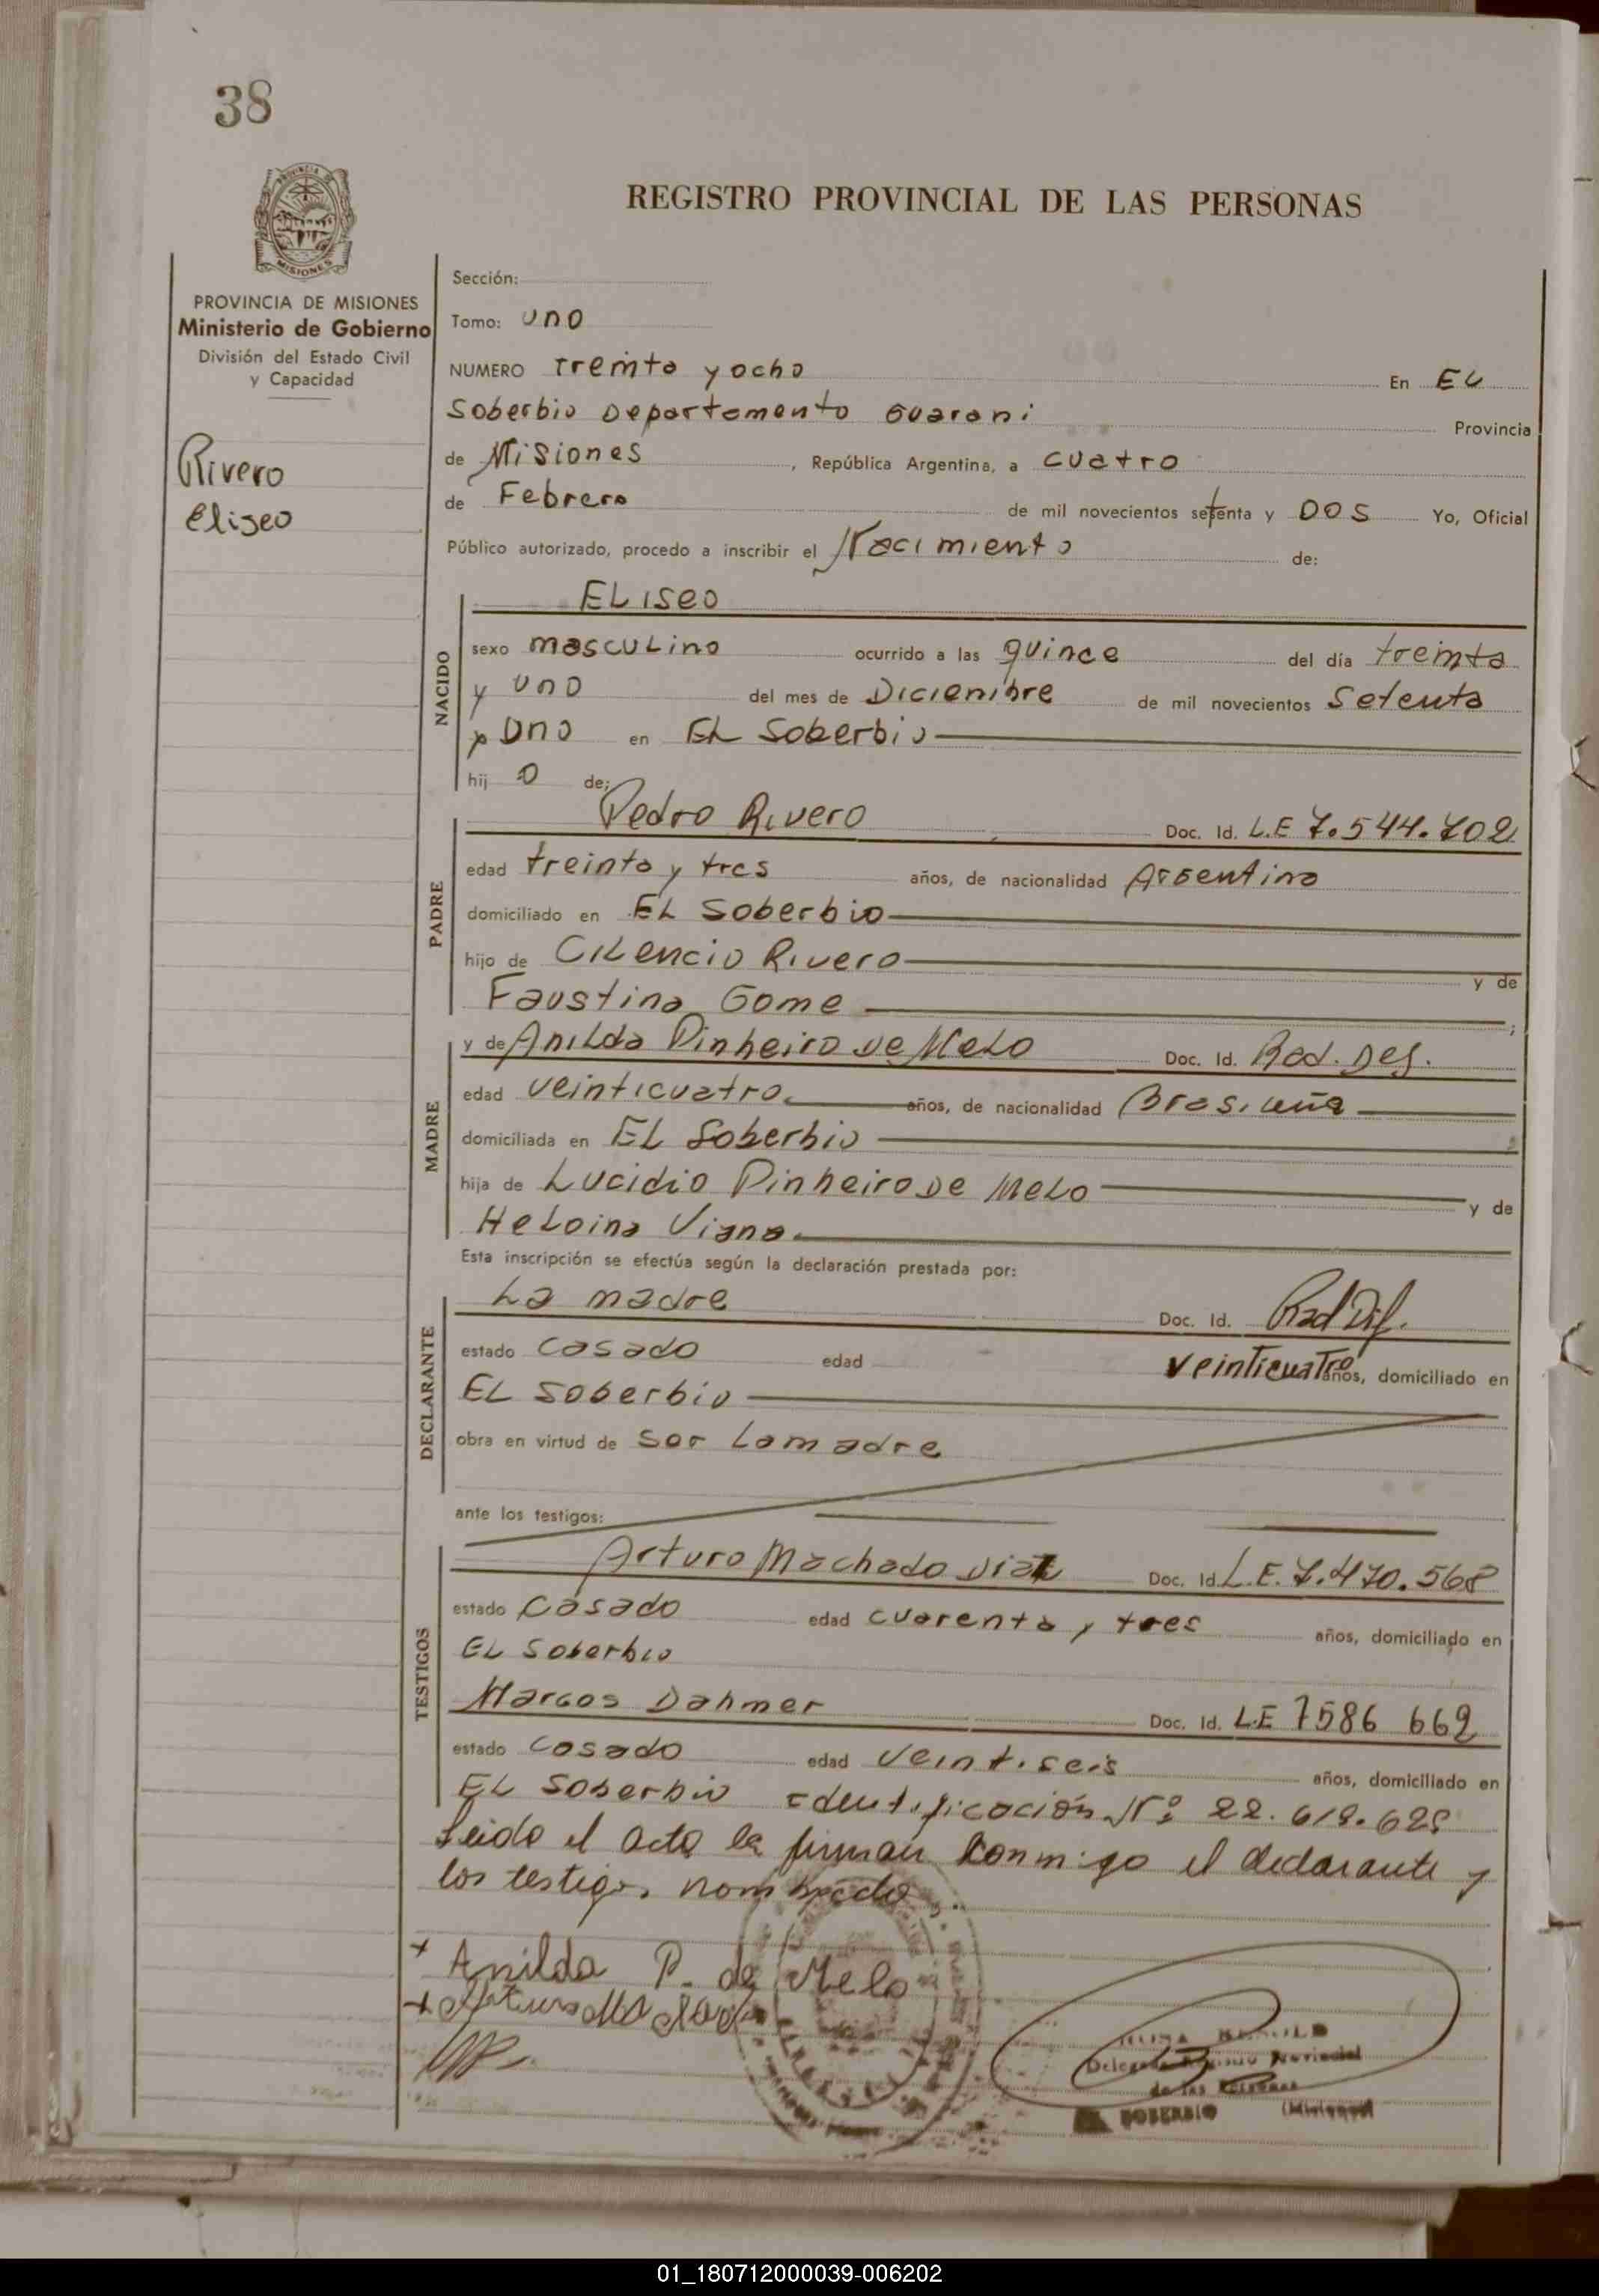 38
REGISTRO PROVINCIAL DE LAS PERSONAS
MISIONES
PROVINCIA DE MISIONES
Ministerio de Gobierno
División del Estado Civil
y Capacidad
Rivero
Eliseo
Sección:
Tomo: uno
NUMERO Treinta y ocho En EL
Soberbio Departamento Guarani Provincia
de Misiones, República Argentina, a cuatro
de Febrero de mil novecientos setenta y DOS Yo, Oficial
Público autorizado, procedo a inscribir el Nacimiento de:
NACIDO
ELISEO
sexo masculino ocurrido a las quince del día treinta
y uno del mes de Diciembre de mil novecientos Setenta
y uno en EL Soberbio
hij o de:
PADRE
Pedro Rivero Doc. Id. L.E 7.544.702
edad treinta y tres años, de nacionalidad Argentina
domiciliado en EL Soberbio
hijo de CILencio Rivero y de
Faustina Gome ;
MADRE
y de Anilda Pinheiro De Melo Doc. Id. Rad.
edad veinticuatro años, de nacionalidad Brasileña
domiciliada en EL Soberbio ;
hija de Lucidio Pinheiro De Melo y de
Heloina Viana
Esta inscripción se efectúa según la declaración prestada por:
DECLARANTE
La madre Doc. Id. Rad
estado casado edad veinticuatro años, domiciliado en
EL Soberbio
obra en virtud de Ser La madre
ante los testigos:
TESTIGOS
Arturo Machado Doc. Id. L.E. 7.470.568
estado Casado edad cuarenta y tres años, domiciliado en
EL Soberbio
Marcos Dahmer Doc. Id. L.E 7586 662
estado casado edad veintiseis años, domiciliado en
EL Soberbio Identificación Nº 22.618.628
Leido el acta la firman conmigo el declarante y
los testigos nombrados.
+ Anilda P. de Melo
+ Arturo
ROSA
Delegada Registro Provincial
de las Personas
EL SOBERBIO (Misiones)
01_180712000039-006202